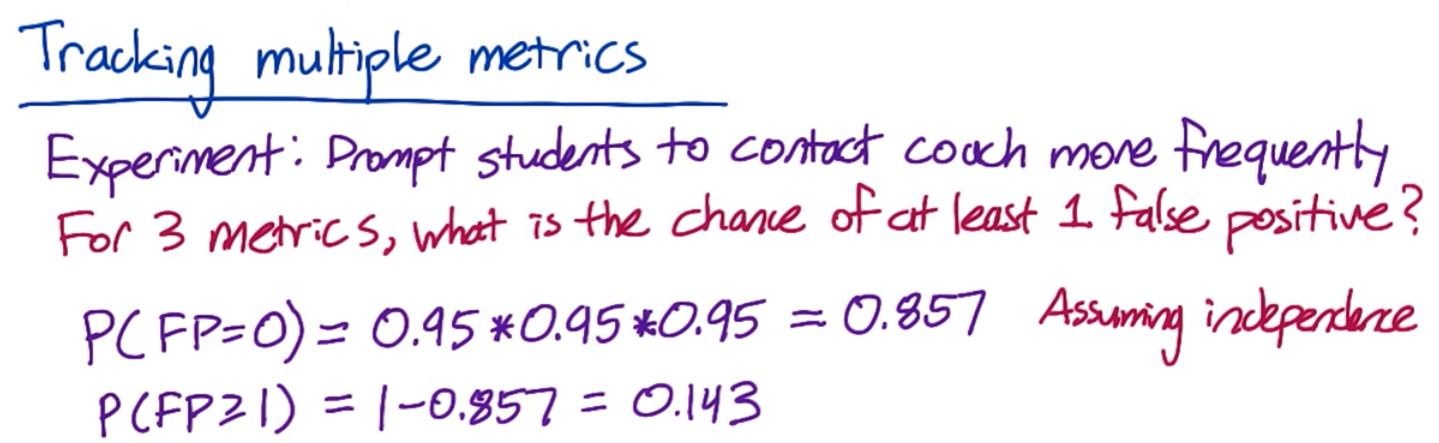 Tracking multiple metrics
Experiment: Prompt students to contact coach more frequently
For 3 metrics, what is the chance of at least 1 false positive?
P(FP=0) = 0.95*0.95*0.95 = 0.857 Assuming independence
P(FP≥1) = 1-0.857 = 0.143